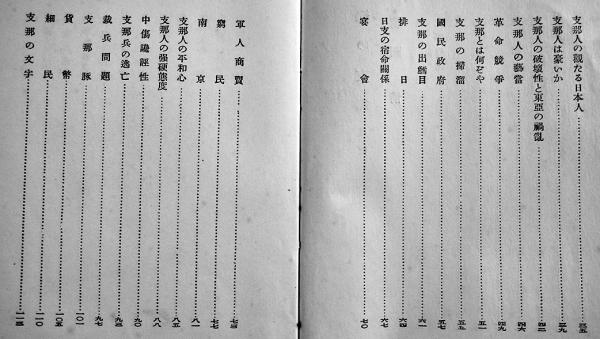 支那人の觀たる日本人……三五
支那人は豪いか……三九
支那人の破壞性と東亞の禍亂……四二
支那人の藝當……四六
革命競爭……四九
支那とは何ぞや……五一
支那の掃溜……五五
國民政府……五七
支那の出鱈目……六一
排日……六四
日支の宿命關係……六七
宴會……七〇
軍人商賣……七三
窮民……七七
南京……八一
支那人の平和心……八五
支那人の強硬態度……八八
中傷譏誣性……九〇
支那兵の逃亡……九三
裁兵問題……九七
支那豚……一〇一
貨幣……一〇五
細民……一一〇
支那の文字……一一三